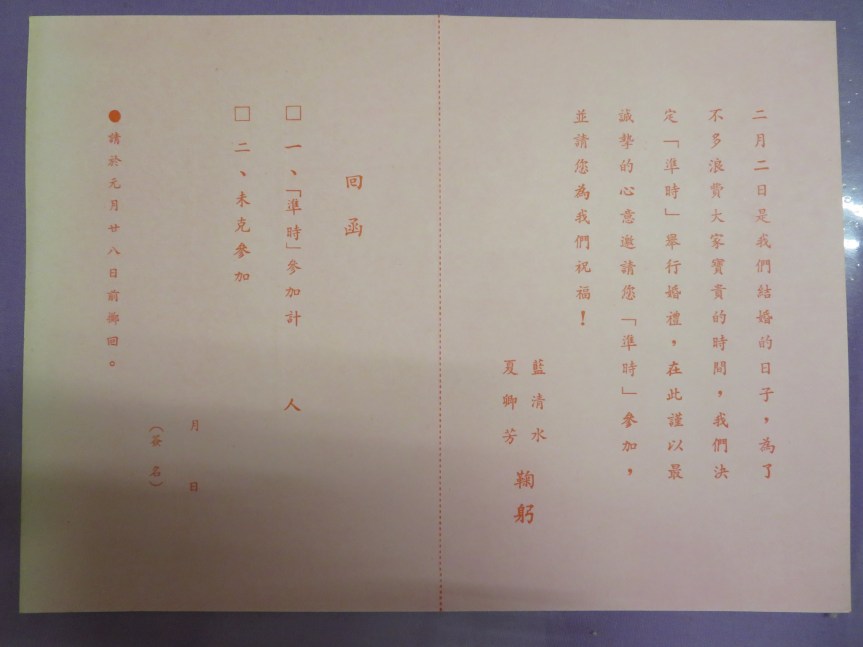 二月二日是我們結婚的日子，為了
不多浪費大家寶貴的時間，我們決
定「準時」舉行婚禮，在此謹以最
誠摯的心意邀請您「準時」參加，
並請您為我們祝福！
藍清水
夏卿芳
鞠躬
回函
□一、「準時」參加計　人
□二、未克參加
月　日
（簽名）
●請於元月廿八日前擲回。